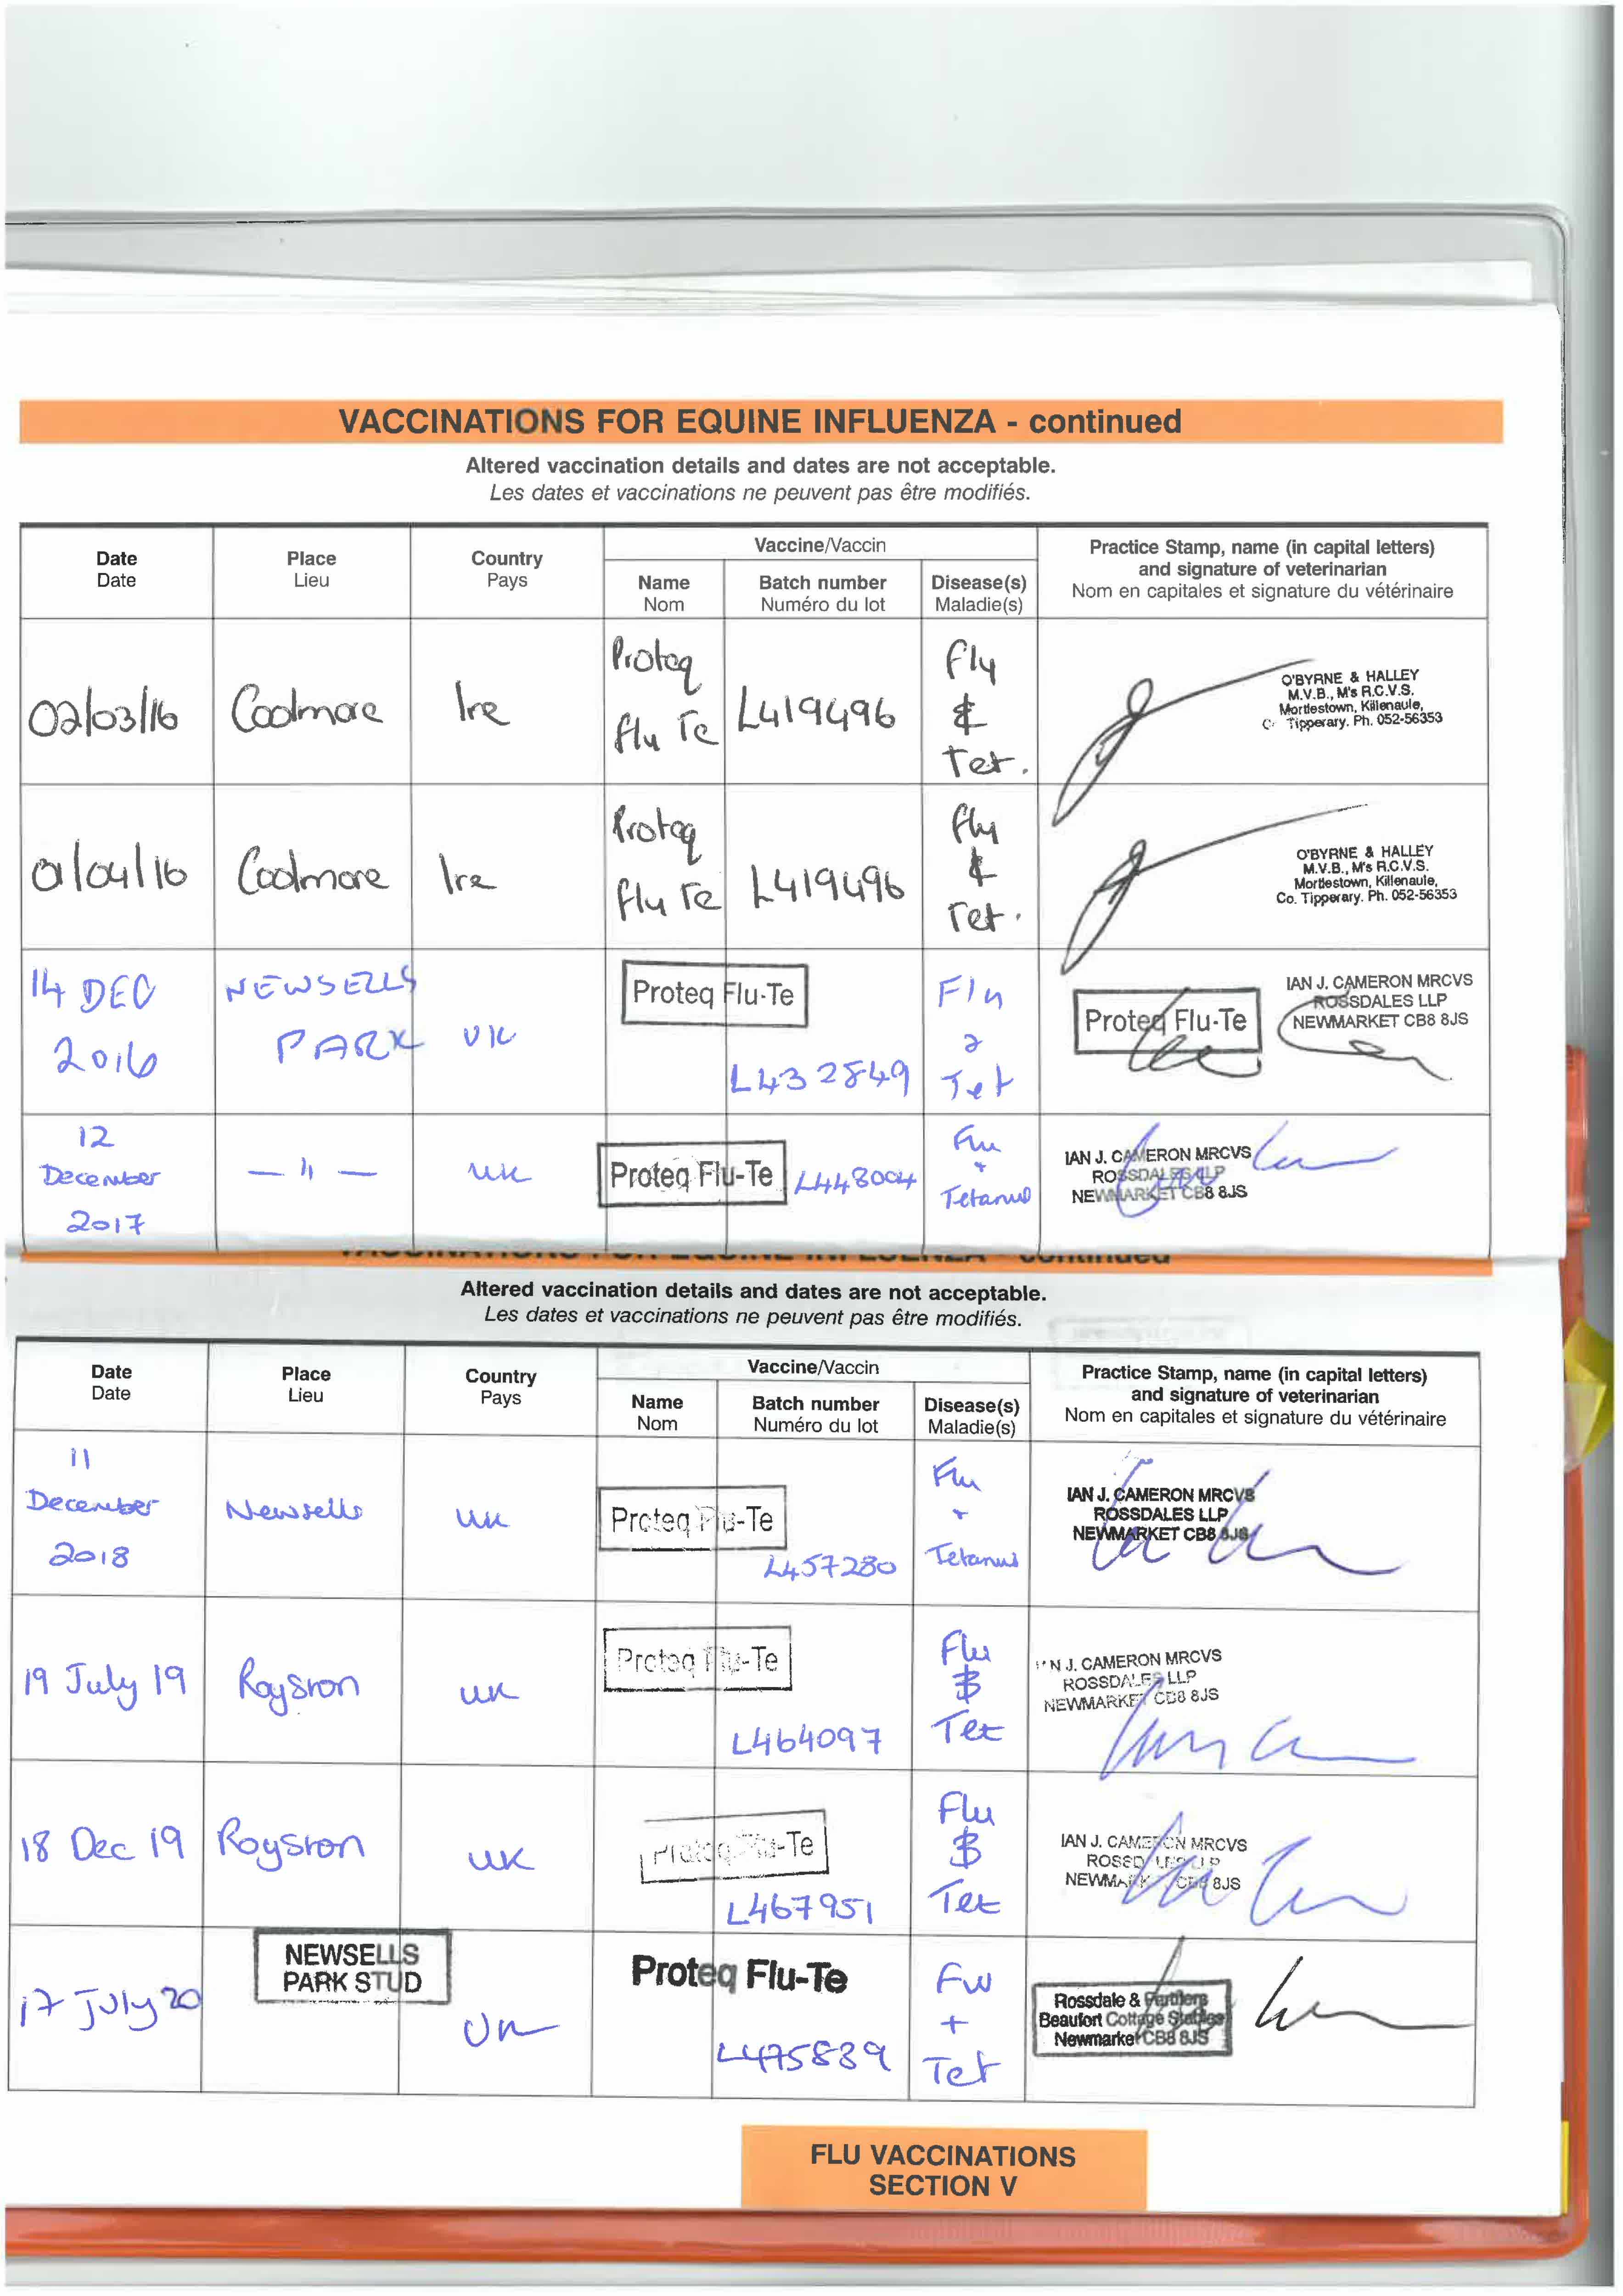 VACCINATIONS FOR EQUINE INFLUENZA - continued
Altered vaccination details and dates are not acceptable.
Les dates et vaccinations ne peuvent pas être modifiés.
Date
Date
Place
Lieu
Country
Pays
Vaccine/Vaccin
Name
Nom
Batch number
Numéro du lot
Disease(s)
Maladie(s)
Practice Stamp, name (in capital letters)
and signature of veterinarian
Nom en capitales et signature du vétérinaire
02/03/16
Coolmore
Ire
Proteq
Flu Te
L419496
Flu
&
Tet.
O'BYRNE & HALLEY
M.V.B., M's R.C.V.S.
Mortlestown, Killenaule,
Tipperary. Ph. 052-56353
01/04/16
Coolmore
Ire
Proteq
Flu Te
L419496
Flu
&
Tet.
O'BYRNE & HALLEY
M.V.B., M's R.C.V.S.
Mortlestown, Killenaule,
Co. Tipperary. Ph. 052-56353
14 DEC
2016
NEWSELLS
PARK
UK
Proteq Flu-Te
L432849
Flu
Tet
Proteq Flu-Te
IAN J. CAMERON MRCVS
ROSSDALES LLP
NEWMARKET CB8 8JS
12
December
2017
— 11 —
UK
Proteq Flu-Te
L448004
Flu
+
Tetanus
IAN J. CAMERON MRCVS
ROSSDALES LLP
NEWMARKET CB8 8JS
VACCINATIONS FOR EQUINE INFLUENZA - continued
Altered vaccination details and dates are not acceptable.
Les dates et vaccinations ne peuvent pas être modifiés.
Date
Date
Place
Lieu
Country
Pays
Vaccine/Vaccin
Name
Nom
Batch number
Numéro du lot
Disease(s)
Maladie(s)
Practice Stamp, name (in capital letters)
and signature of veterinarian
Nom en capitales et signature du vétérinaire
11
December
2018
Newsells
UK
Proteq Flu-Te
L457280
Flu
+
Tetanus
IAN J. CAMERON MRCVS
ROSSDALES LLP
NEWMARKET CB8 8JS
19 July 19
Royston
UK
Proteq Flu-Te
L464097
Flu
&
Tet
J. CAMERON MRCVS
ROSSDALES LLP
NEWMARKET CB8 8JS
18 Dec 19
Royston
UK
Proteq Flu-Te
L467951
Flu
&
Tet
IAN J. CAMERON MRCVS
ROSSDALES LLP
NEWMARKET CB8 8JS
17 July 20
NEWSELLS
PARK STUD
UK
Proteq Flu-Te
L475889
Flu
+
Tet
Rossdale & Partners
Beaufort Cottage Stables
Newmarket CB8 8JS
FLU VACCINATIONS
SECTION V